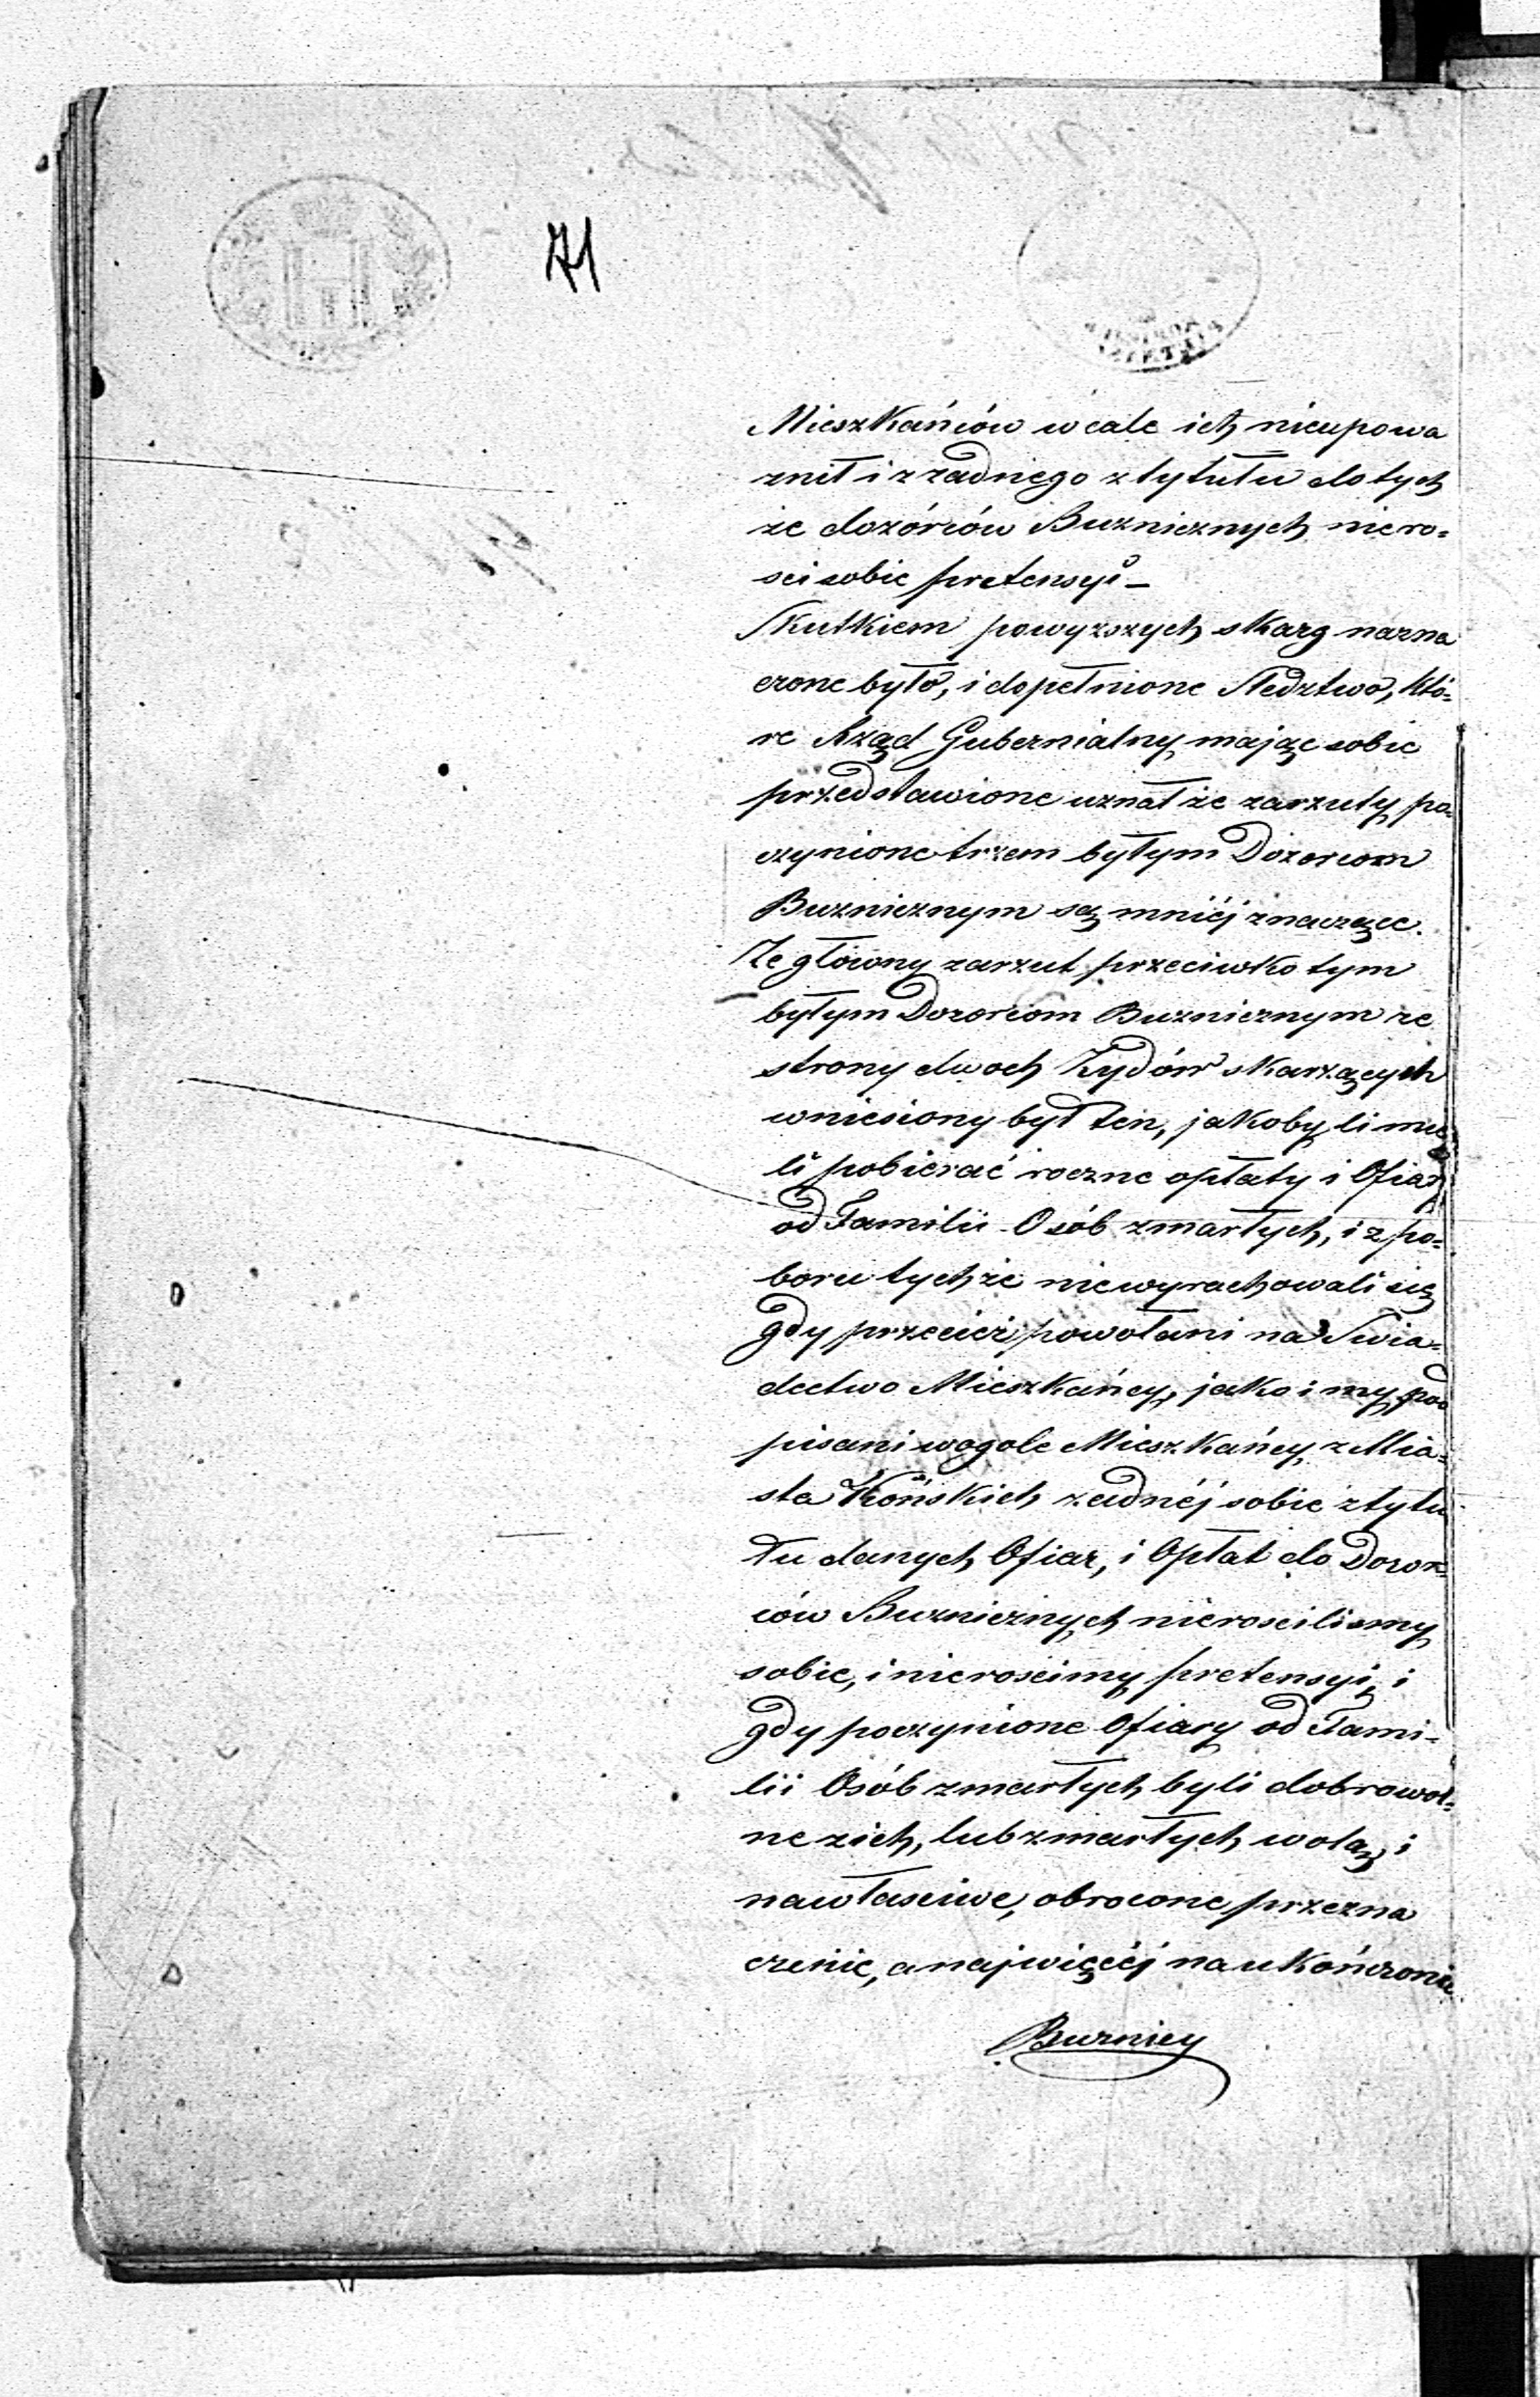 71
Mieszkańców wcale ich nieupowa
znił i z żadnego z tytułu do tych
że dozórców Buznicznych niero-
sci sobie pretensyi –
Skutkiem powyzszych skarg nazna
czone było, i dopełnione Sledztwo, któ-
re Rząd Gubernialny mając sobie
przedstawione uznał że zarzuty po-
czynione trzem byłym Dozorcom
Buznicznym są mniéj znaczące.
Że głowny zarzut przeciwko tym
byłym Dozorcom Buznicznym ze
strony dwoch Żydów skarzących
wniesiony był ten, jakoby ci mie
li pobierać roczne opłaty i Ofiary
od Familii Osób zmarłych, i z po-
boru tychże niewyrachowali się
gdy przecież powołani na Swia-
dectwo Mieszkańcy, jako i my pod
pisani wogole Mieszkańcy z Mia-
sta Końskich żadnéj sobie z tytu
łu danych Ofiar, i Opłat do Dozor-
ców Buznicznych nierosciliśmy
sobie, i nierościmy pretensyi, i
gdy poczynione Ofiary od Fami-
lii Osób zmarłych byli dobrowol-
ne z ich, lub zmarłych wolą, i
nawłasciwe, obrocone przezna
czenie, a najwięcéj na ukończenie
Buznicy